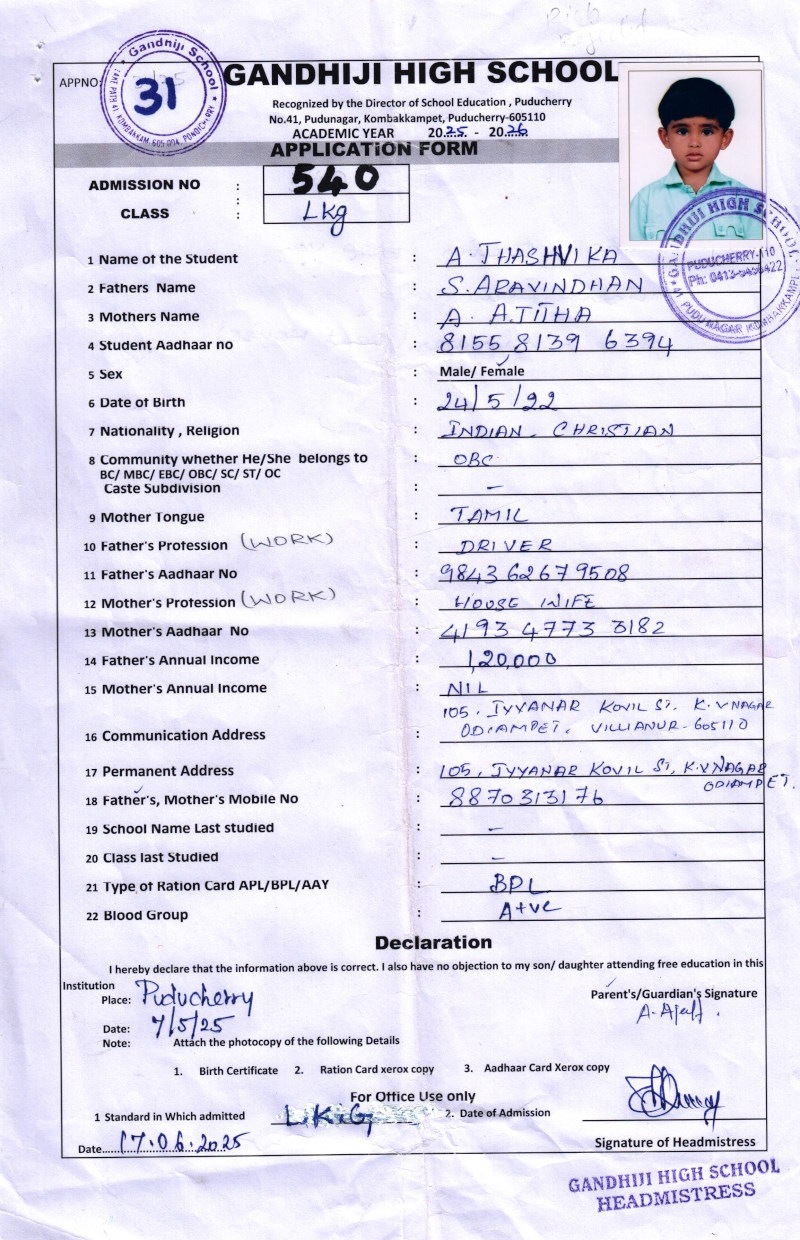 APPNO:
Gandhiji School
31
GANDHIJI HIGH SCHOOL
Recognized by the Director of School Education , Puducherry
No.41, Pudunagar, Kombakkampet, Puducherry-605110
ACADEMIC YEAR 2025 - 2026
APPLICATION FORM
ADMISSION NO : 540
CLASS : Lkg
GANDHIJI HIGH SCHOOL
PUDUCHERRY-110
1 Name of the Student : A. JHASHVIKA
2 Fathers Name : S. ARAVINDHAN
3 Mothers Name : A. AJITHA
4 Student Aadhaar no : 8155 8139 6394
5 Sex : Male/ Female
6 Date of Birth : 24/5/22
7 Nationality , Religion : INDIAN - CHRISTIAN
8 Community whether He/She belongs to : OBC
BC/ MBC/ EBC/ OBC/ SC/ ST/ OC
Caste Subdivision : –
9 Mother Tongue : TAMIL
10 Father's Profession (WORK) : DRIVER
11 Father's Aadhaar No : 9843 6267 9508
12 Mother's Profession (WORK) : HOUSE WIFE
13 Mother's Aadhaar No : 4193 4773 3182
14 Father's Annual Income : 1,20,000
15 Mother's Annual Income : NIL
105, IYYANAR KOVIL ST, K.V NAGAR
16 Communication Address : ODIAMPET, VILLIANUR-605110
17 Permanent Address : 105, IYYANAR KOVIL ST, K.V NAGAR
ODIAMPET.
18 Father's, Mother's Mobile No : 8870313176
19 School Name Last studied : –
20 Class last Studied : –
21 Type of Ration Card APL/BPL/AAY : BPL
22 Blood Group : A+ve
Declaration
I hereby declare that the information above is correct. I also have no objection to my son/ daughter attending free education in this
Institution
Place: Puducherry
Parent's/Guardian's Signature
Date: 7/5/25
Note: Attach the photocopy of the following Details
1. Birth Certificate 2. Ration Card xerox copy 3. Aadhaar Card Xerox copy
For Office Use only
1 Standard in Which admitted L.K.G 2. Date of Admission
Date......17.06.2025
Signature of Headmistress
GANDHIJI HIGH SCHOOL
HEADMISTRESS